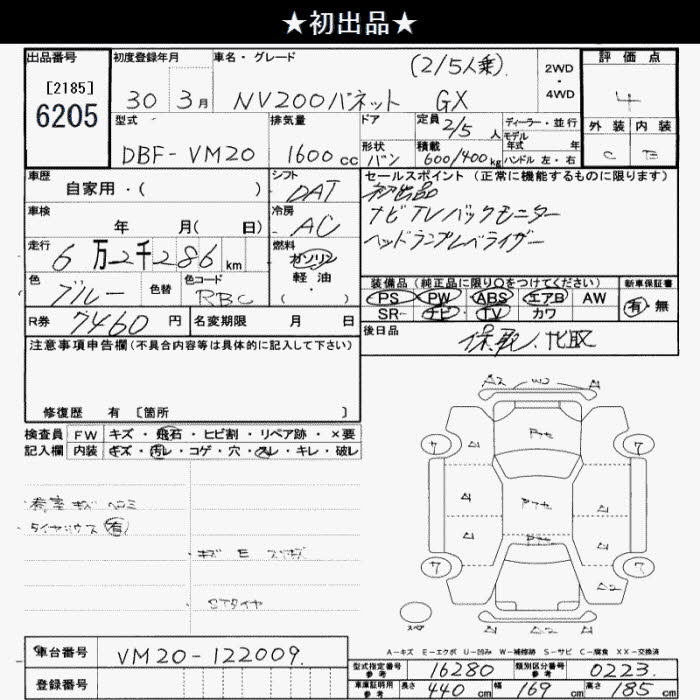 ★初出品★
出品番号
[2185]
6205
初度登録年月
30 3月
車名・グレード
(2/5人乗).
NV200バネット GX
2WD
・
4WD
評価点
4
外装 内装
C B
型式
DBF-VM20
排気量
1600cc
ドア
形状
バン
定員 2/5 人
積載
600/400kg
ディーラー・並行
モデル
年式 年
ハンドル 左・右
車歴
自家用・( )
シフト
DAT
車検
年 月( 日)
冷房
AC
走行
6万2千286km
燃料
ガソリン
・
軽油
・
( )
色
ブルー
色替
色コード
RBG
R券 7460円
名変期限 月 日
セールスポイント (正常に機能するものに限ります)
初出品
ナビTVバックモニター
ヘッドランプレベライザー
装備品 (純正品に限り○をつけてください)
PS PW ABS エアB AW
SR ナビ TV カワ
新車保証書
有・無
後日品
保取、化取
注意事項申告欄(不具合内容等は具体的に記入して下さい)
修復歴 有 〔箇所 〕
検査員 FW キズ・飛石・ヒビ割・リペア跡・×要
記入欄 内装 キズ・汚レ・コゲ・穴・スレ・キレ・破レ
荷室キズ ヘコミ
タイヤハウス 有
STタイヤ
A2 WD A
7 A Pキズ 7
A A
Pキズ
A A
7 7
A2
スペア
A A2 A
A-キズ E-エクボ U-凹み W-補修跡 S-サビ C-腐食 XX-交換済
車台番号 VM20-122009.
登録番号
型式指定番号
参考
16280
類別区分番号
参考
0223
車庫証明用
参考
長さ 440cm 幅 169cm 高さ 185cm